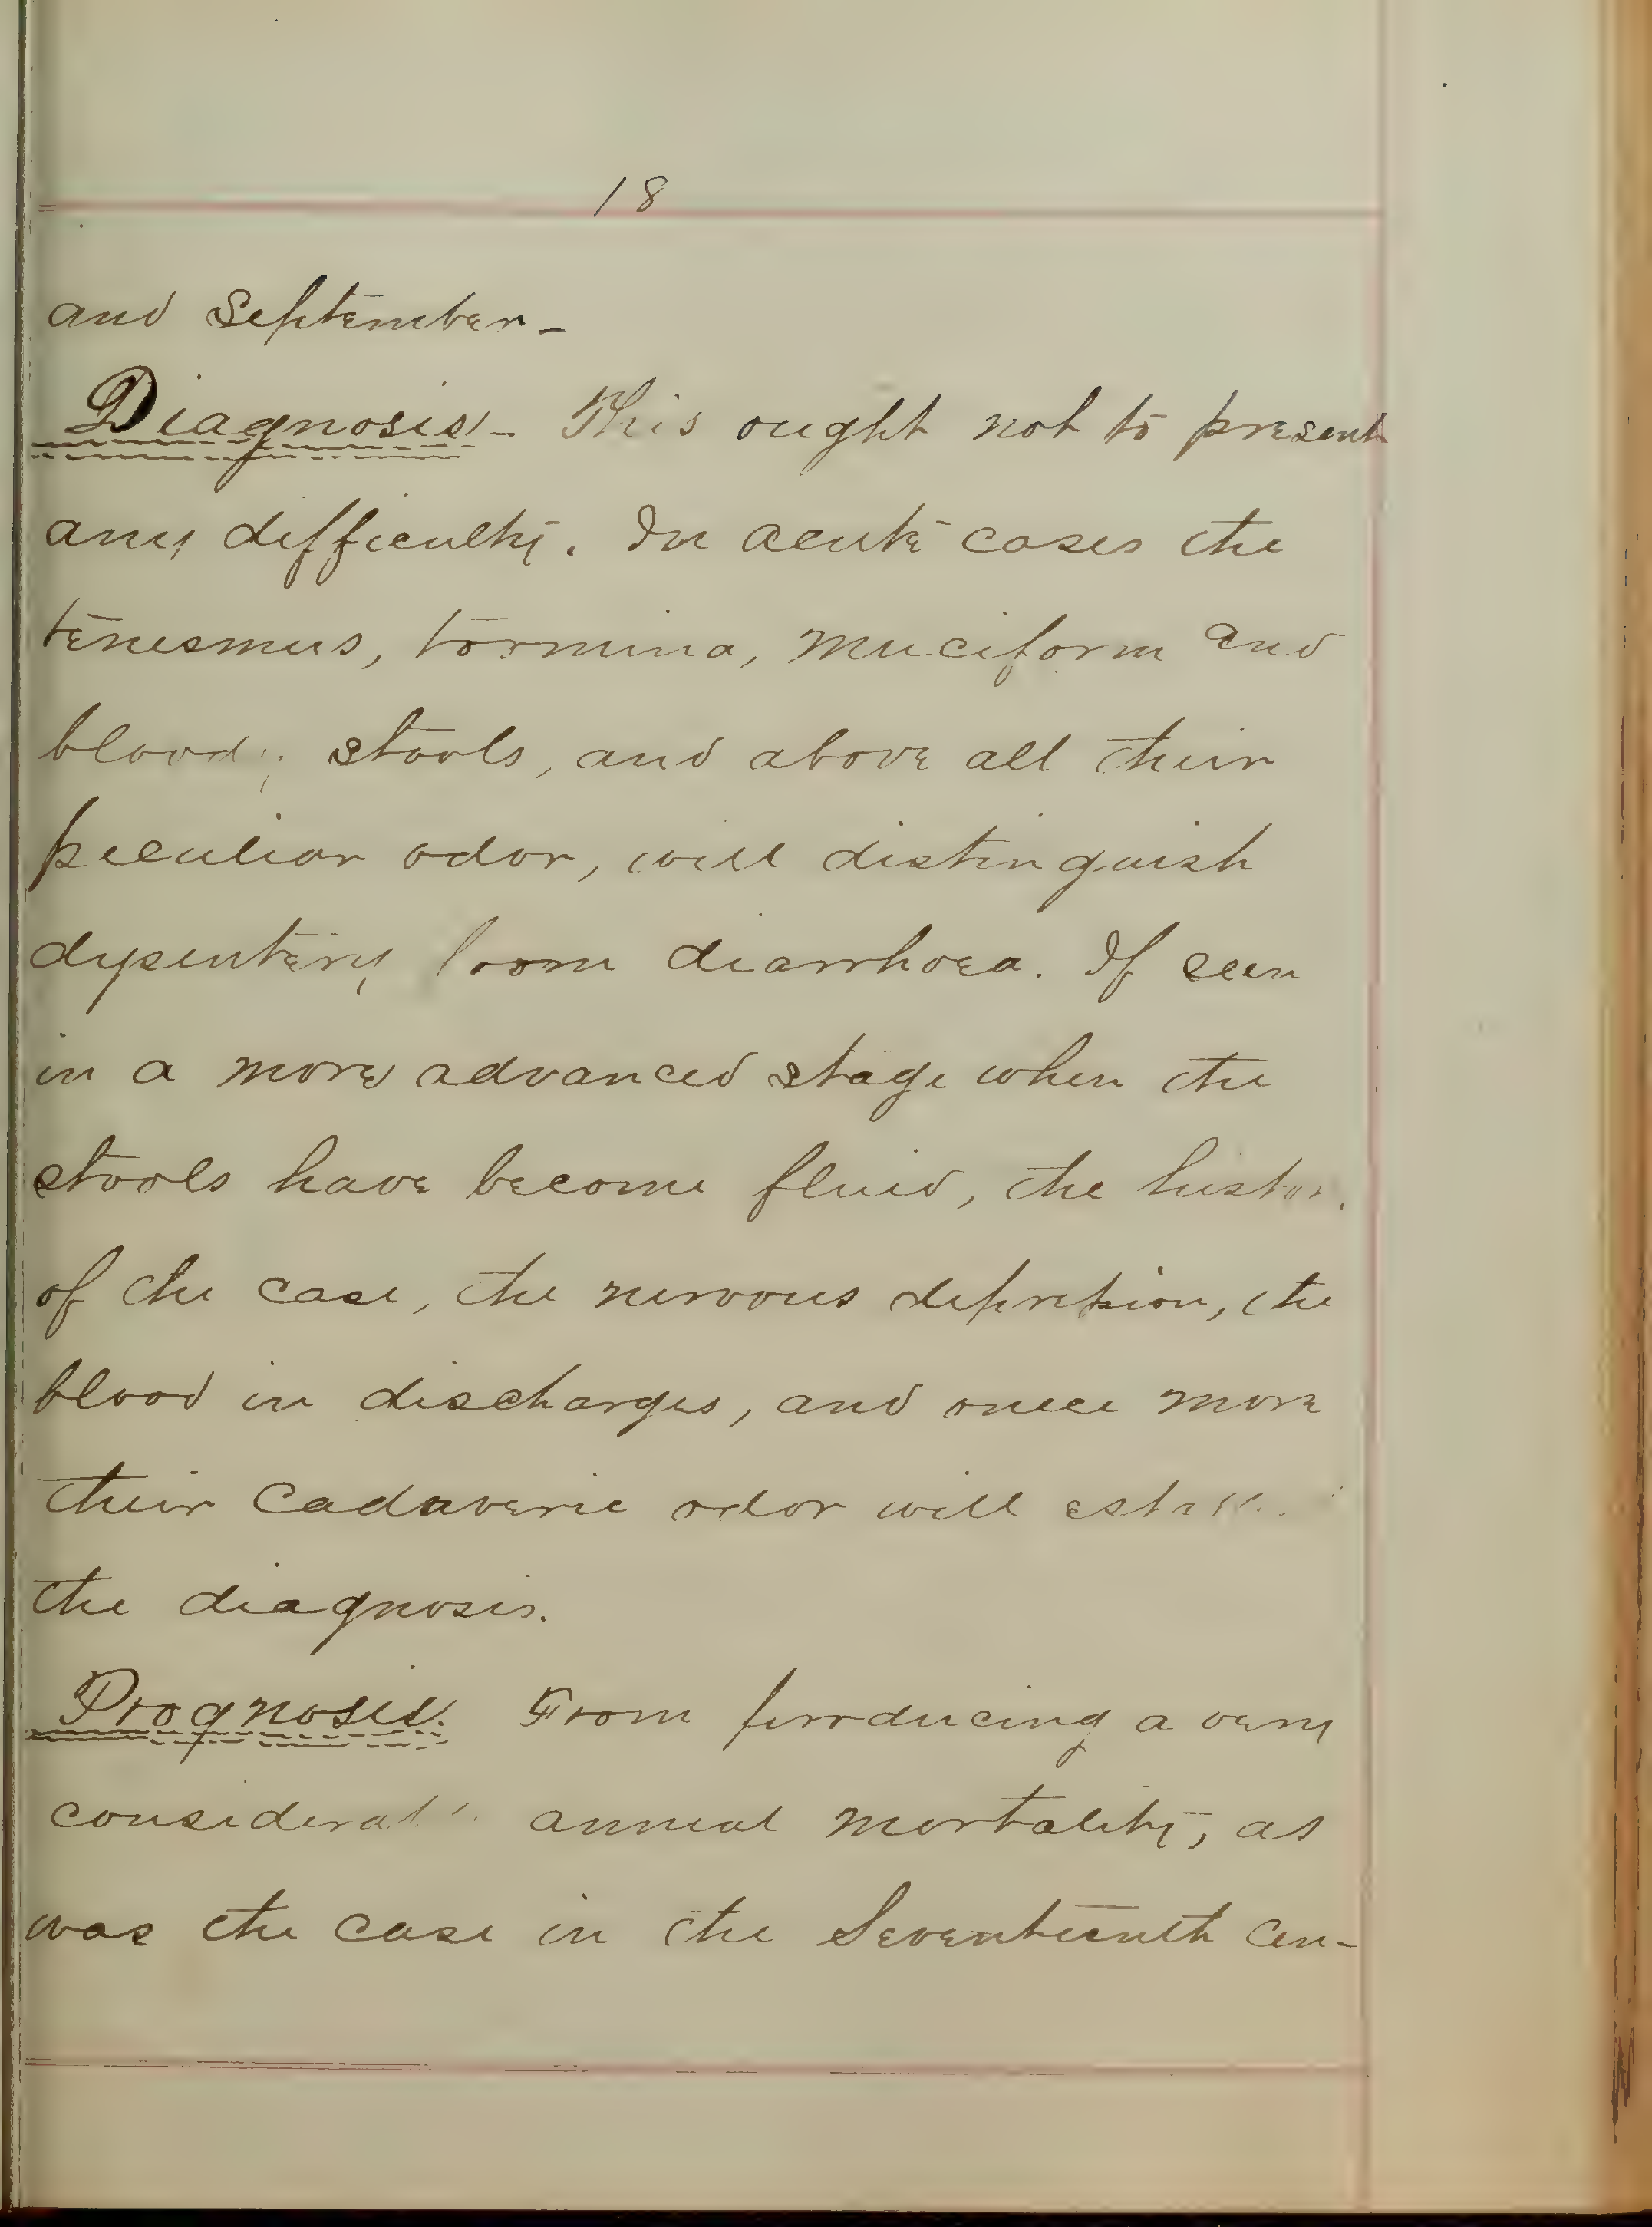 18
and September-
Diagnosis- This ought not to present
any difficulty. In acute cases the
tenesmus, tormina, muciform and
bloody stools, and above all their
peculiar odor, will distinguish
dysentery from diarrhoea. If seen
in a more advanced stage when the
stools have become fluid, the history
of the case, the nervous depression, the
blood in discharges, and once more
their cadaveric odor will
the diagnosis.
Prognosis. From producing a very
considerable annual mortality, as
was the case in the Seventeenth cen-